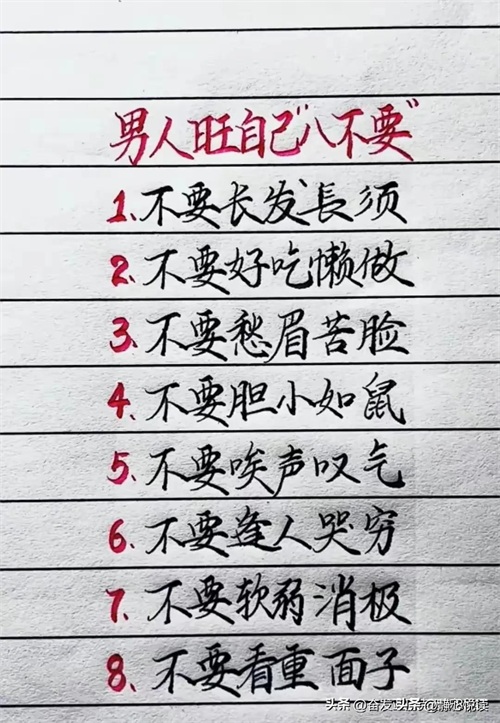 男人旺自己"八不要"
1、不要长发長须
2、不要好吃懒做
3、不要愁眉苦脸
4、不要胆小如鼠
5、不要唉声叹气
6、不要逢人哭穷
7、不要软弱消极
8、不要看重面子
头条 @奋发
头条 @